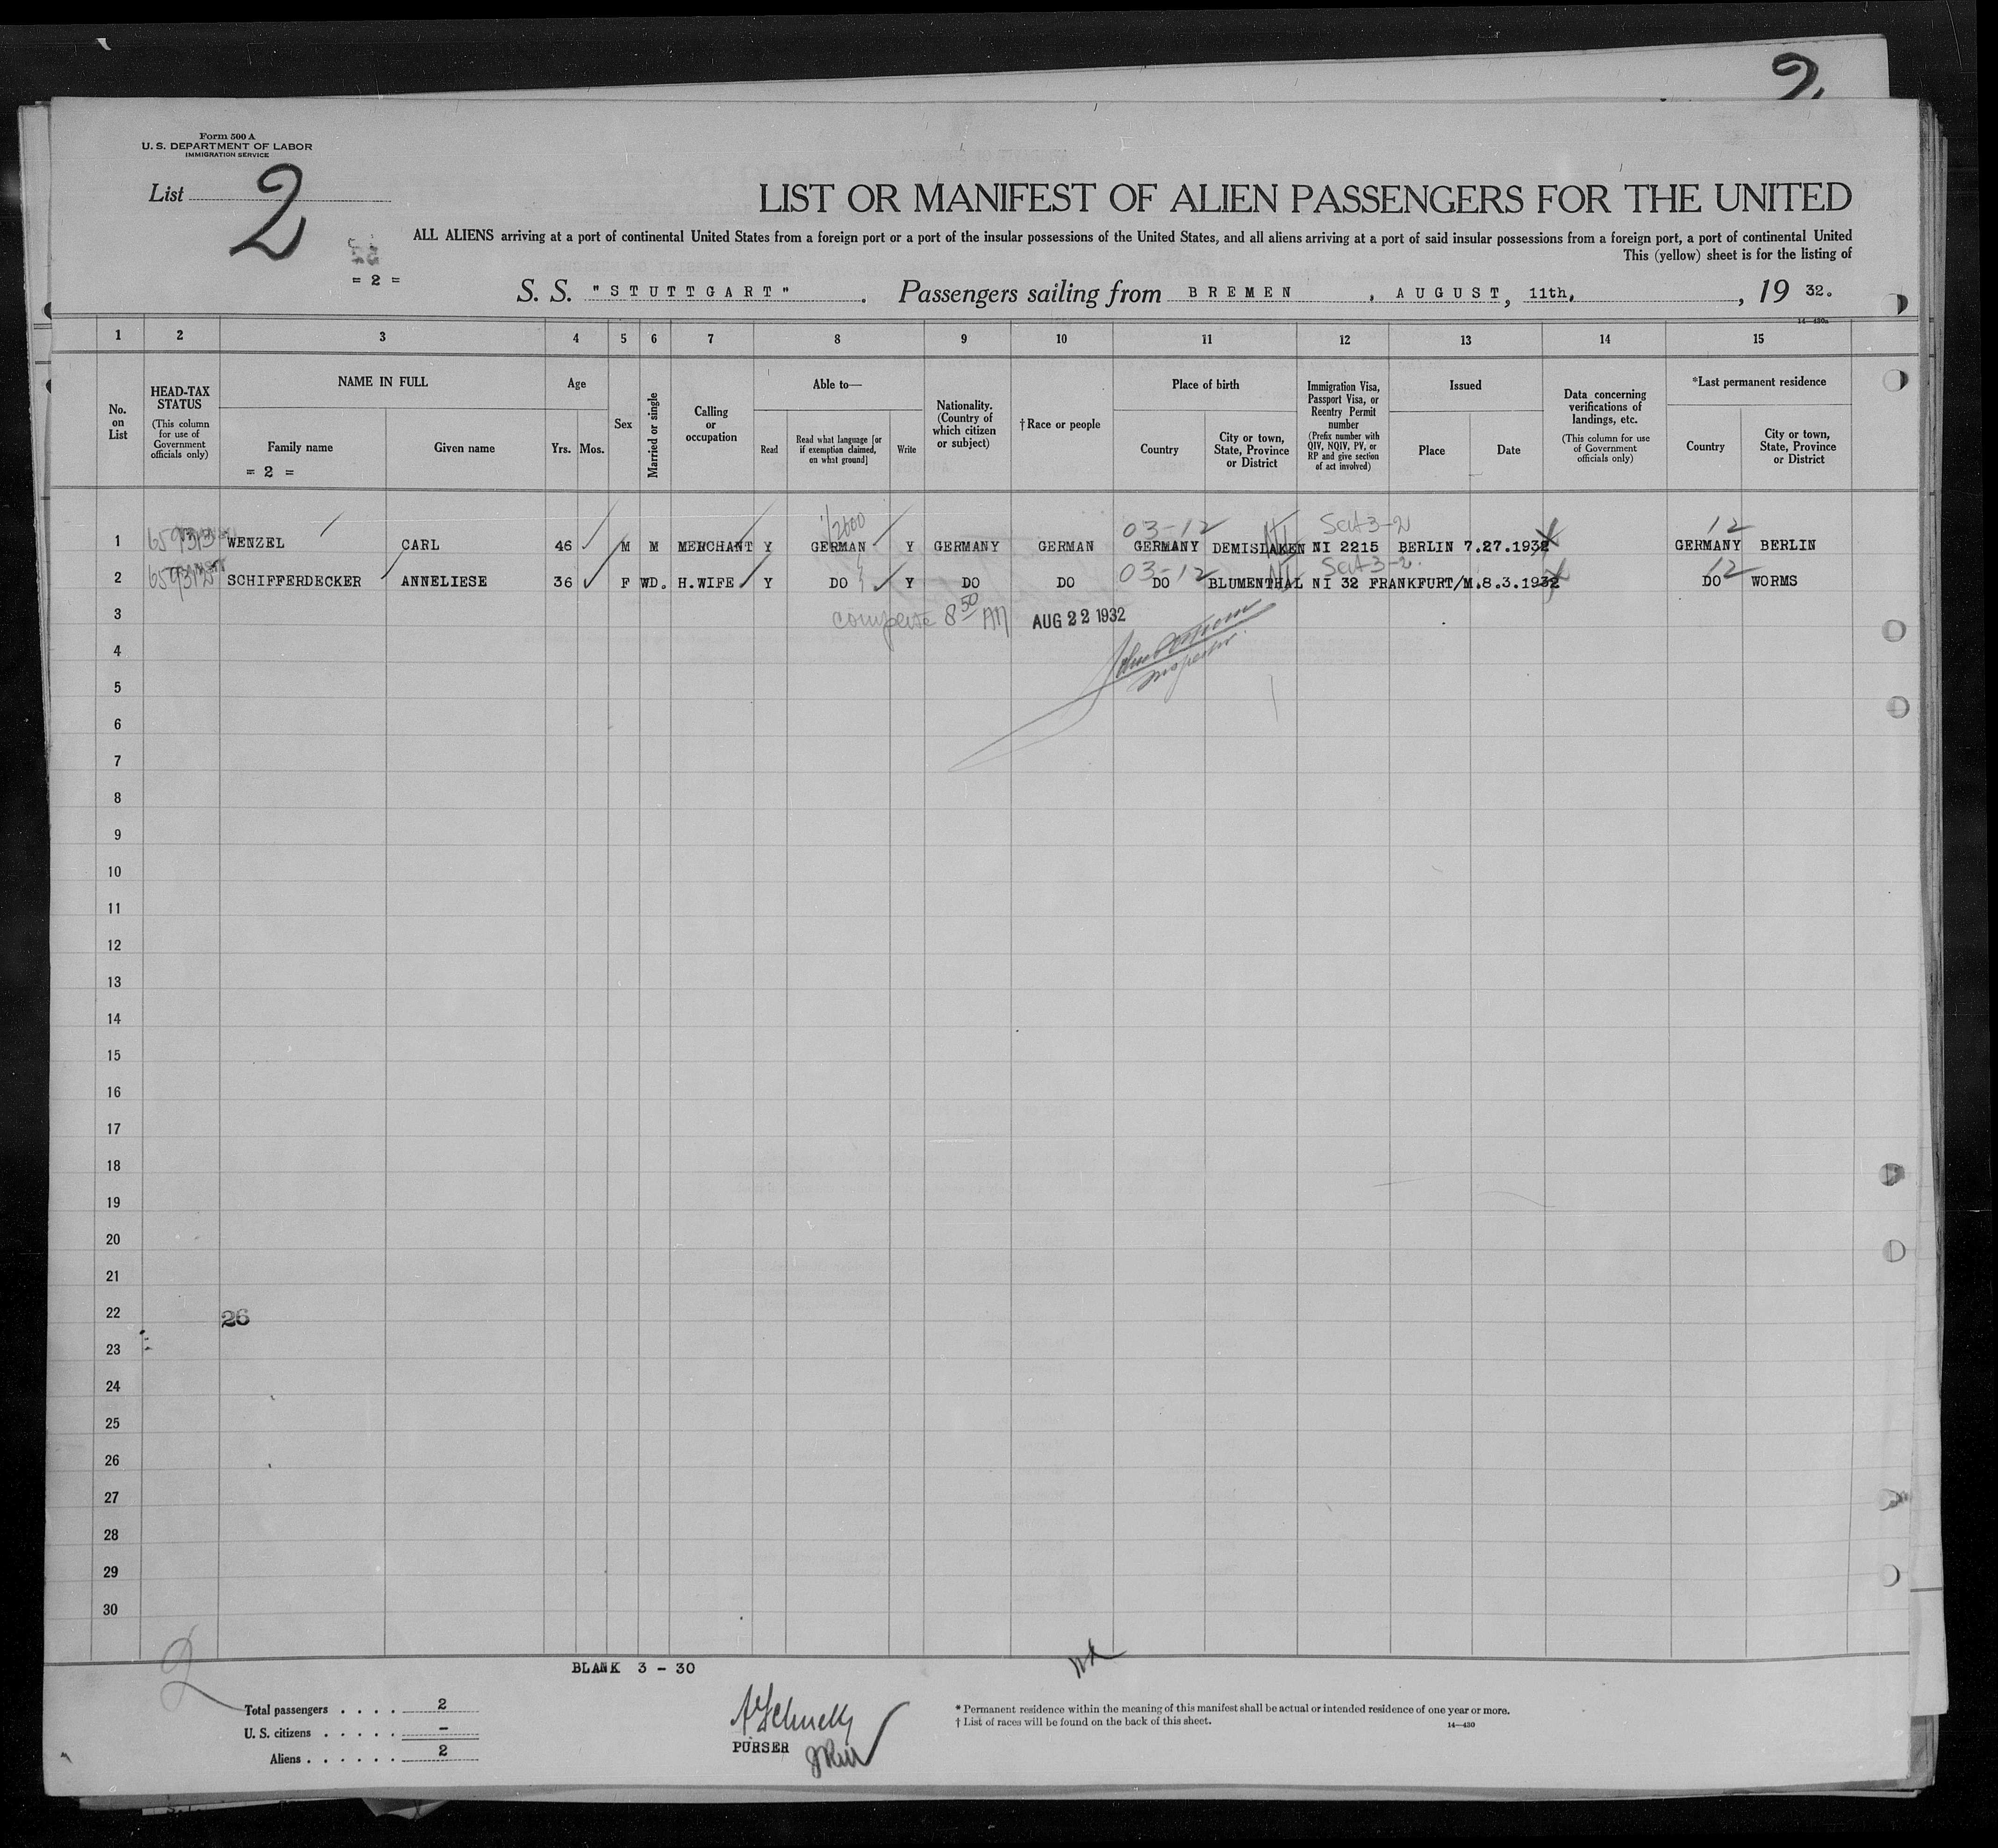 2
Form 500 A
U. S. DEPARTMENT OF LABOR
IMMIGRATION SERVICE
List 2
LIST OR MANIFEST OF ALIEN PASSENGERS FOR THE UNITED
ALL ALIENS arriving at a port of continental United States from a foreign port or a port of the insular possessions of the United States, and all aliens arriving at a port of said insular possessions from a foreign port, a port of continental United
This (yellow) sheet is for the listing of
= 2 =
S. S. "STUTTGART". Passengers sailing from BREMEN, AUGUST, 11th, , 19 32.
14—430a
1 2 3 4 5 6 7 8 9 10 11 12 13 14 15
No. on List
HEAD-TAX STATUS (This column for use of Government officials only)
NAME IN FULL Family name Given name
= 2 =
Age Yrs. Mos.
Sex
Married or single
Calling or occupation
Able to— Read Read what language [or if exemption claimed, on what ground] Write
Nationality. (Country of which citizen or subject)
†Race or people
Place of birth Country City or town, State, Province or District
Immigration Visa, Passport Visa, or Reentry Permit number (Prefix number with QIV, NQIV, PV, or RP and give section of act involved)
Issued Place Date
Data concerning verifications of landings, etc. (This column for use of Government officials only)
*Last permanent residence Country City or town, State, Province or District
03-12 Sec 3-2 12
1 WENZEL CARL 46 M M MERCHANT Y GERMAN Y GERMANY GERMAN GERMANY DEMISLAKEN NI 2215 BERLIN 7.27.1932 GERMANY BERLIN
03-12 Sec 3-2 12
2 SCHIFFERDECKER ANNELIESE 36 F WD. H.WIFE Y DO Y DO DO DO BLUMENTHAL NI 32 FRANKFURT/M.8.3.1932 DO WORMS
3 8 50 AM AUG 22 1932
4 Inspector
5
6
7
8
9
10
11
12
13
14
15
16
17
18
19
20
21
22 26
23
24
25
26
27
28
29
30
2
BLANK 3 - 30
Total passengers . . . . 2
U. S. citizens . . . . . –
Aliens . . . . . . 2
PURSER
* Permanent residence within the meaning of this manifest shall be actual or intended residence of one year or more.
† List of races will be found on the back of this sheet.
14—430